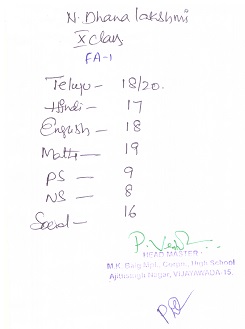 N. Dhana lakshmi
X class
FA-1
Telugu - 18/20.
Hindi - 17
English - 18
Maths - 19
PS - 9
NS - 8
Social - 16
HEAD MASTER
M.K. Baig Mpl. Corpn. High School
Ajithsingh Nagar, VIJAYAWADA-15.